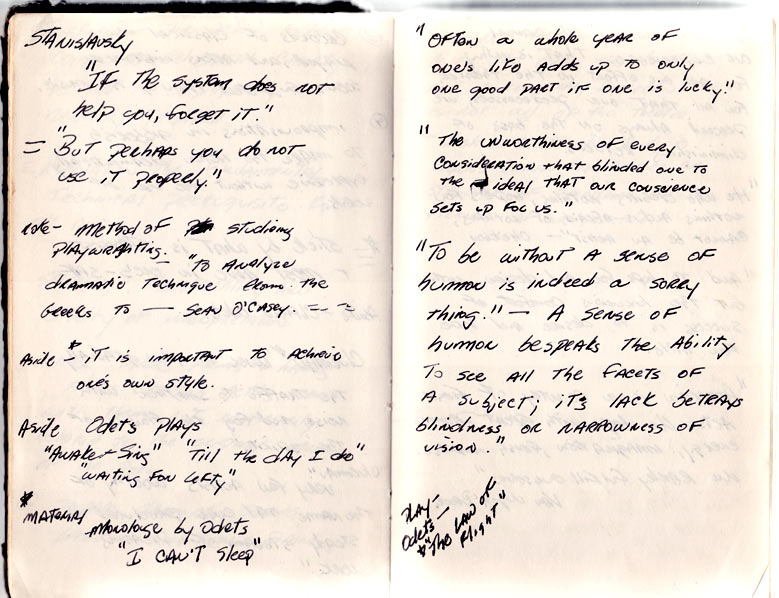 Stanislavsky
"If the system does not
help you, forget it."
= "But perhaps you do not
use it properly."
note - Method of studying
playwrighting.
"To Analyze
dramatic Technique from the
Greeks to — Sean O'Casey. — —
Aside - * it is important to achieve
one's own style.
Aside Odets plays
"Awake + Sing" "Till the day I do"
"Waiting for Lefty"
* Material
- Monologe by Odets
"I CAN'T Sleep"
"Often a whole year of
one's life adds up to only
one good part if one is lucky."
"The unworthiness of every
consideration that blinded one to
the ideal that our conscience
sets up for us."
"To be without a sense of
humor is indeed a sorry
thing." — A sense of
humor bespeaks the ability
to see all the facets of
a subject; its lack betrays
blindness or narrowness of
vision."
Play -
Odets -
* "The Law of
Flight"